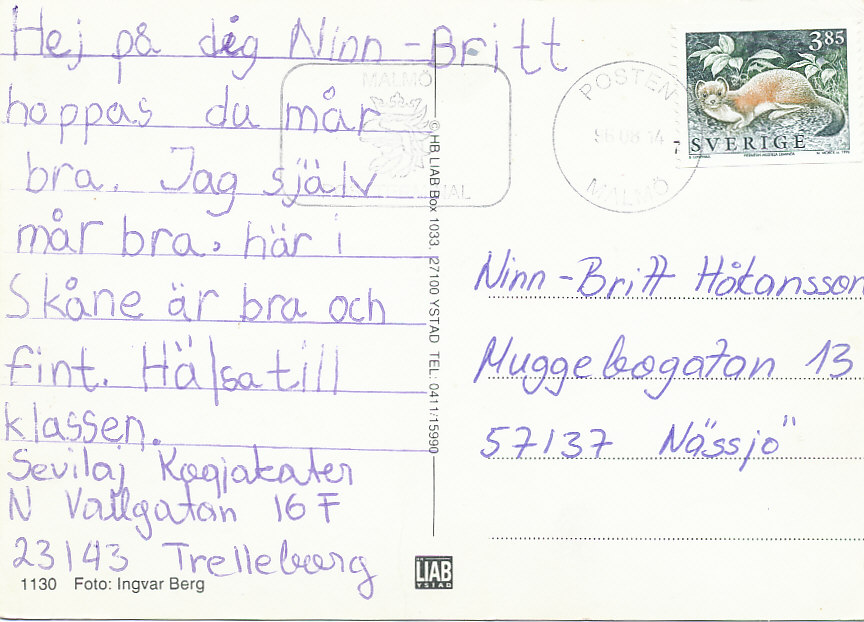 Hej på dig Ninn-Britt
hoppas du mår
bra. Jag själv
mår bra, här i
Skåne är bra och
fint. Hälsa till
klassen.
Sevilaj
N Vallgatan 16 F
23143 Trelleborg
1130 Foto: Ingvar Berg
MALMÖ
© HB LIAB Box 1033, 27100 YSTAD TEL. 0411/15990
LIAB
YSTAD
POSTEN
96 08 14
MALMÖ
3.85
SVERIGE
Ninn-Britt Håkansson
Muggebogatan 13
57137 Nässjö